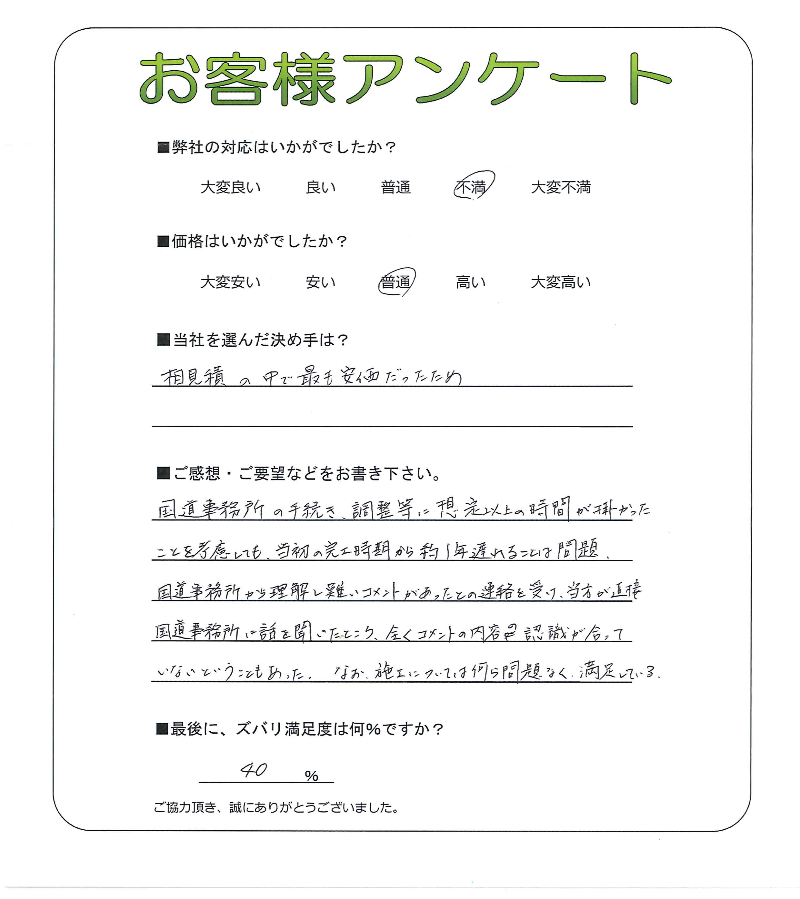 お客様アンケート
■弊社の対応はいかがでしたか？
大変良い 良い 普通 不満 大変不満
■価格はいかがでしたか？
大変安い 安い 普通 高い 大変高い
■当社を選んだ決め手は？
相見積の中で最も安価だったため
■ご感想・ご要望などをお書き下さい。
国道事務所の手続き、調整等に想定以上の時間が掛かった
ことを考慮しても、当初の完工時期から約1年遅れることは問題。
国道事務所から理解し難いコメントがあったとの連絡を受け、当方が直接
国道事務所に話を聞いたところ、全くコメントの内容の認識が合って
いないということもあった。 なお、施工については何ら問題なく、満足している。
■最後に、ズバリ満足度は何%ですか？
40 %
ご協力頂き、誠にありがとうございました。